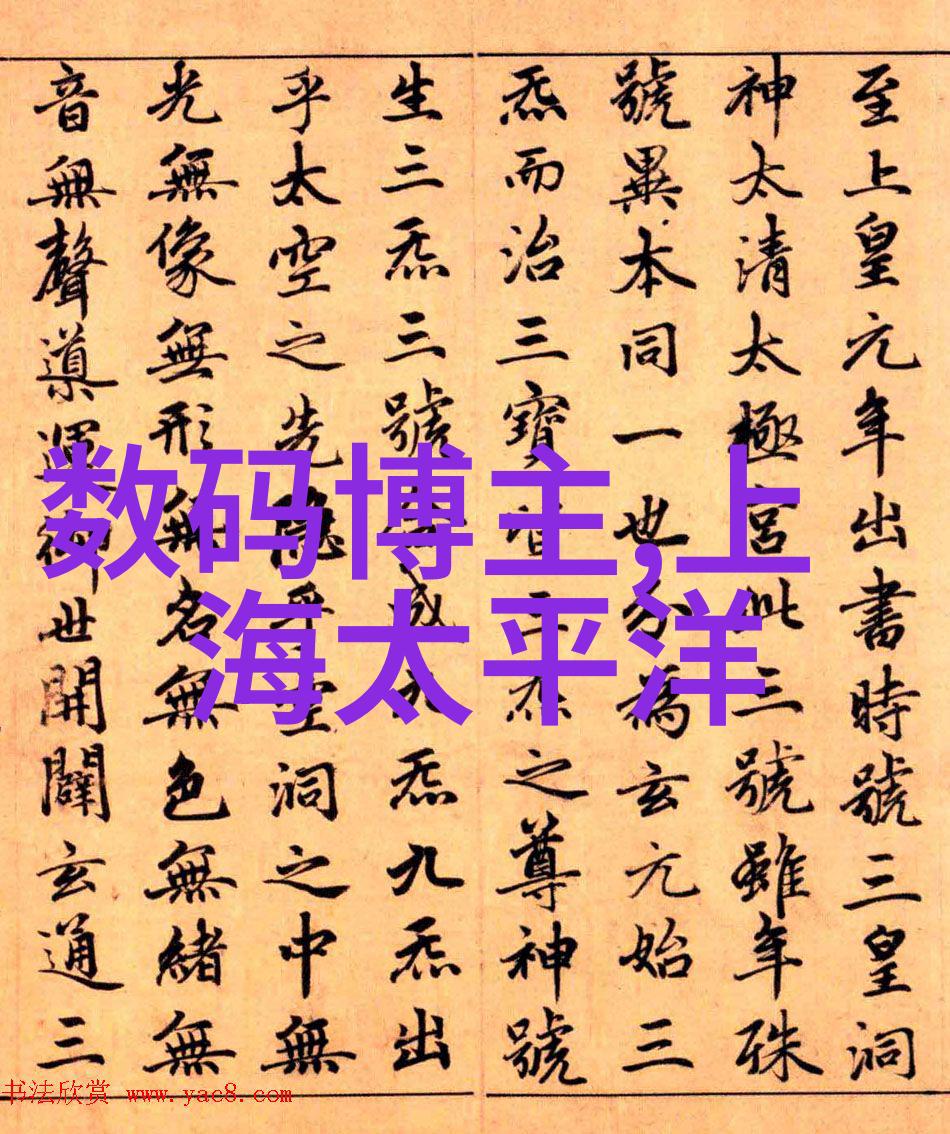 至上皇元年出書時號三皇洞
神太清太極宮此三號雖年殊
號異本同一也分為玄元始三
炁而治三寶皆三炁之尊神號
生三炁三號合成九炁九炁出
乎太空之先隱乎空洞之中無
光無像無形無名無色無緒無
音無聲導運御世開闢玄通三
数码博主,上
海太平洋
书法欣赏 www.yac8.com